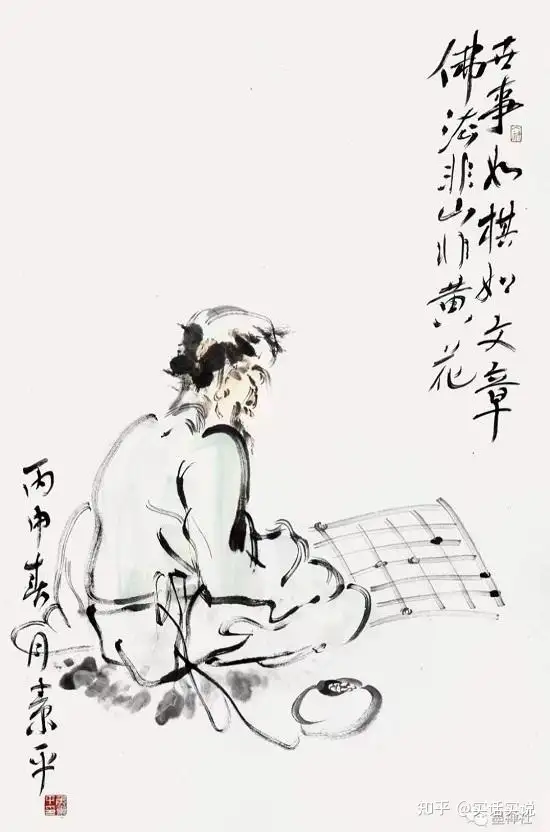 世事如棋如文章
佛法非山非黄花
丙申春月素平
知乎 @实话实说